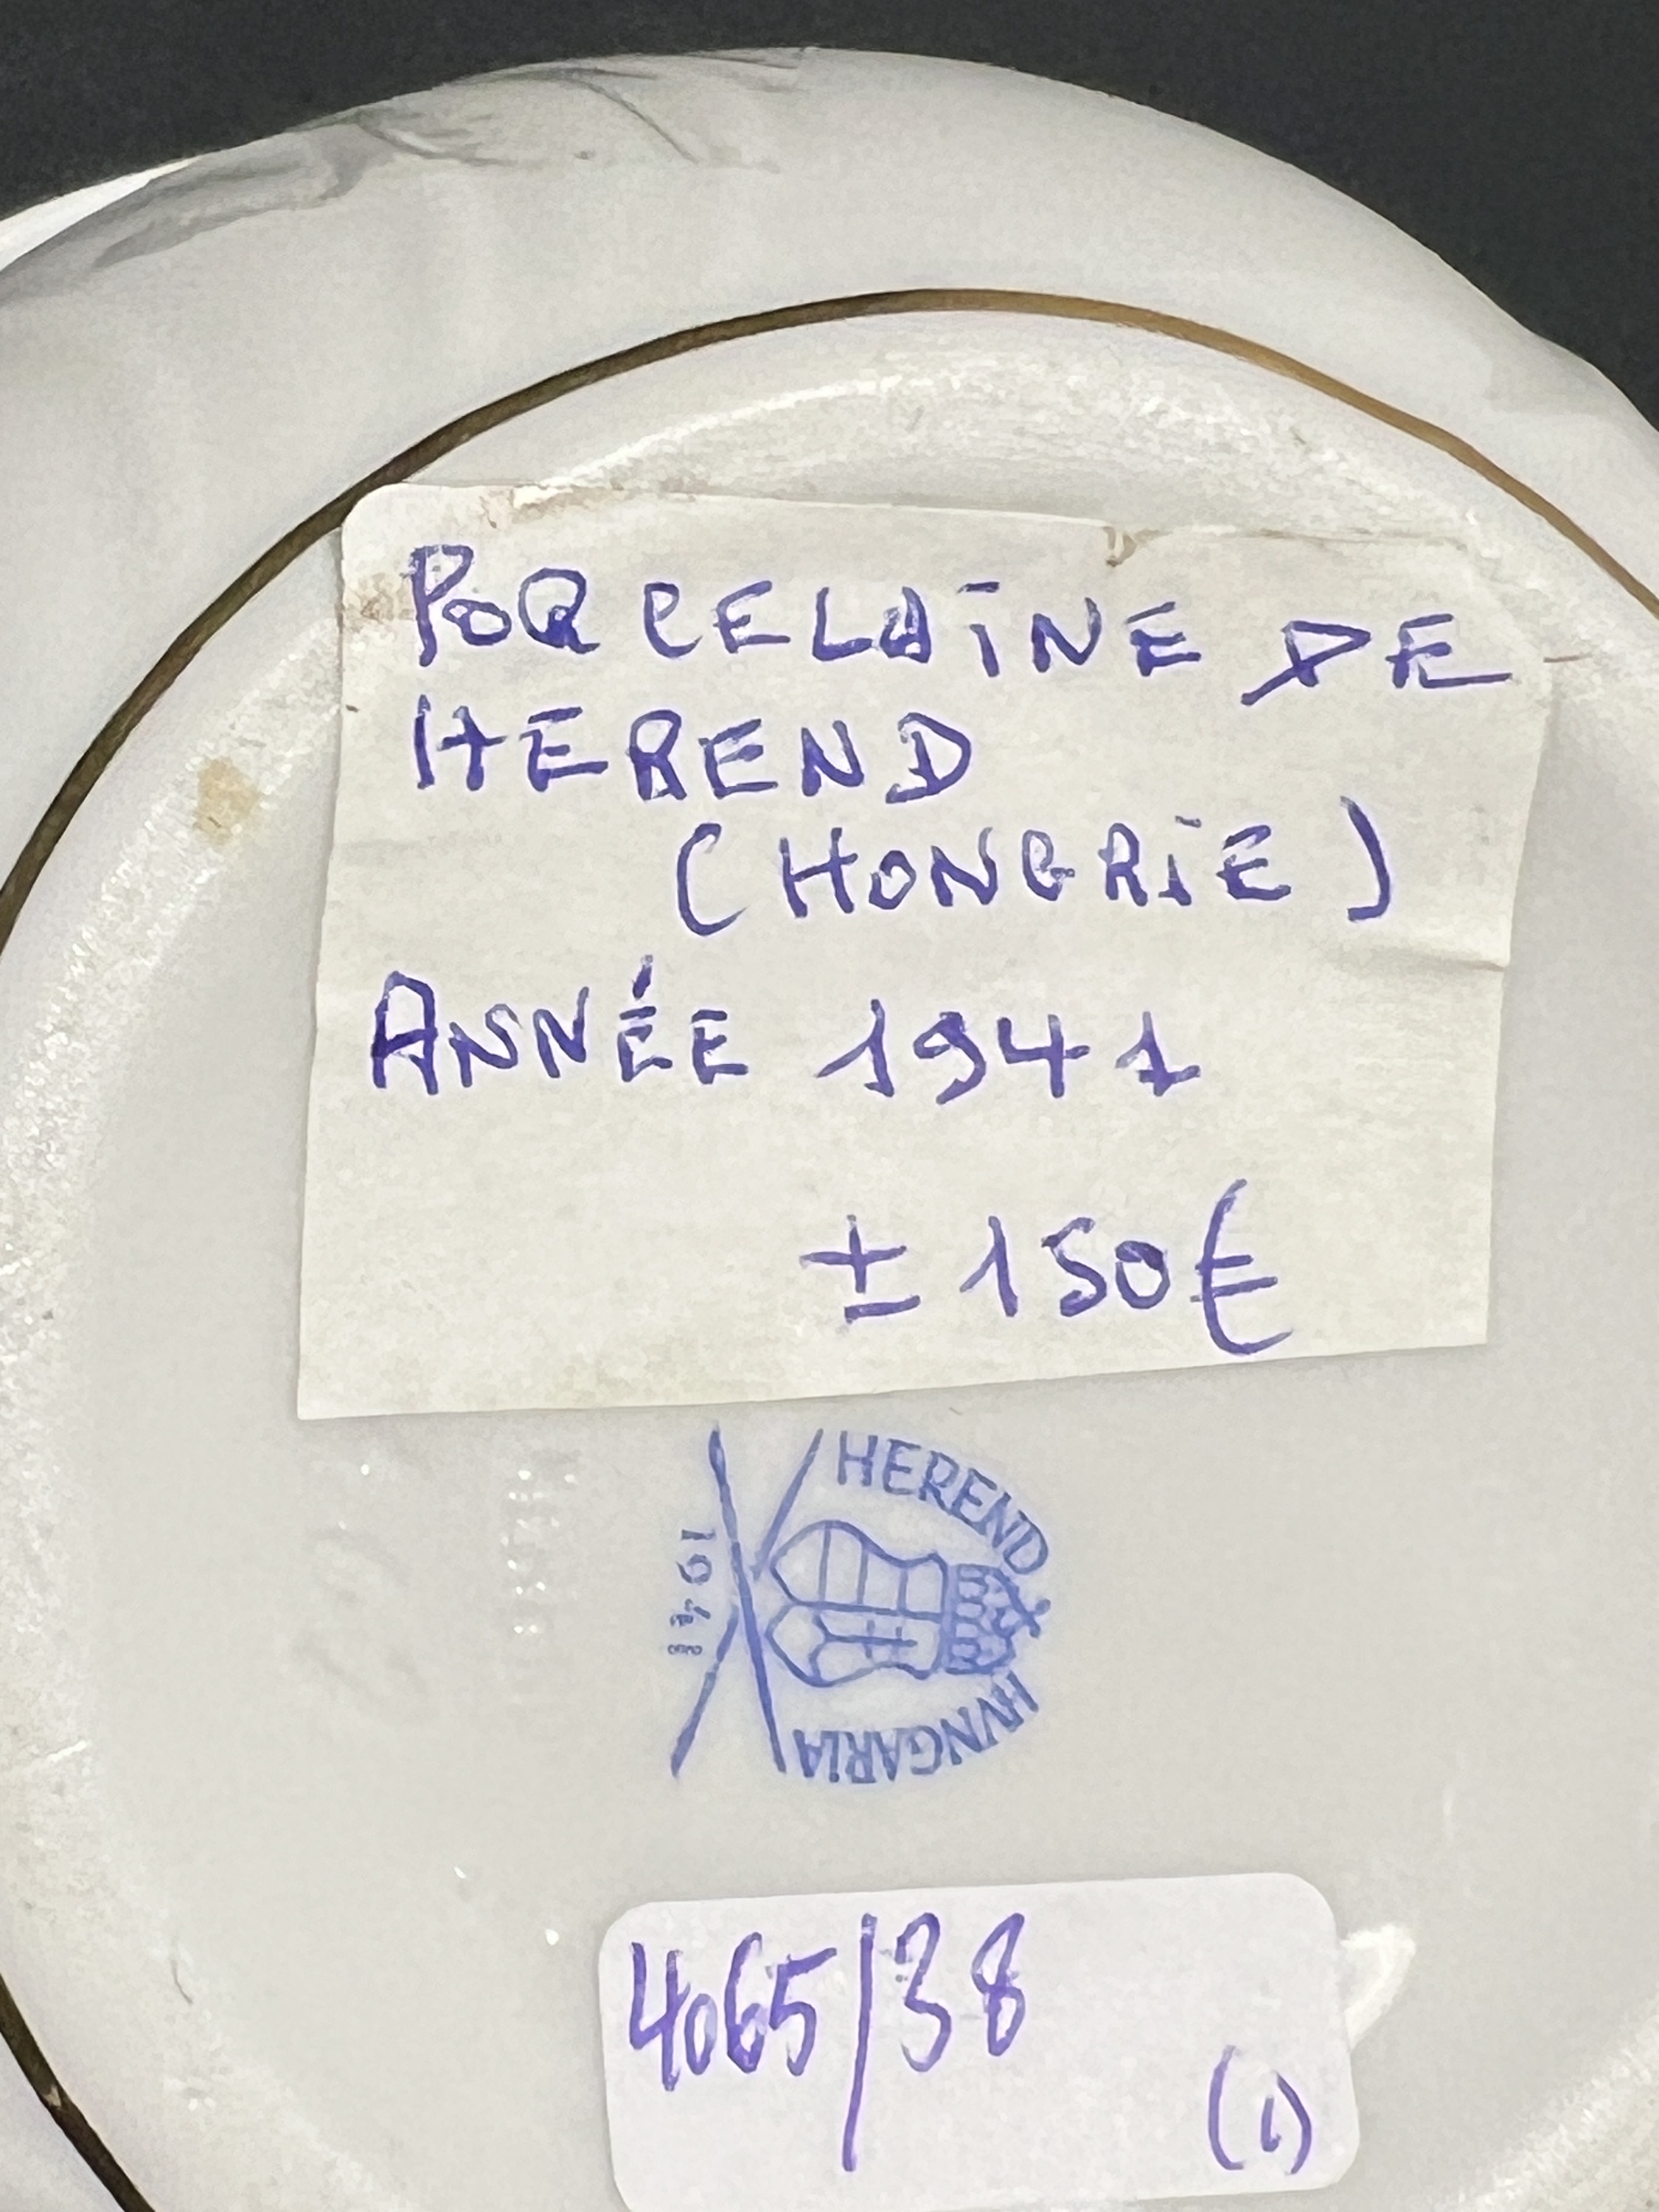 PORCELAINE DE
HEREND
(HONGRIE)
ANNÉE 1941
± 150€
HEREND
HVNGARIA
4065/38
(1)